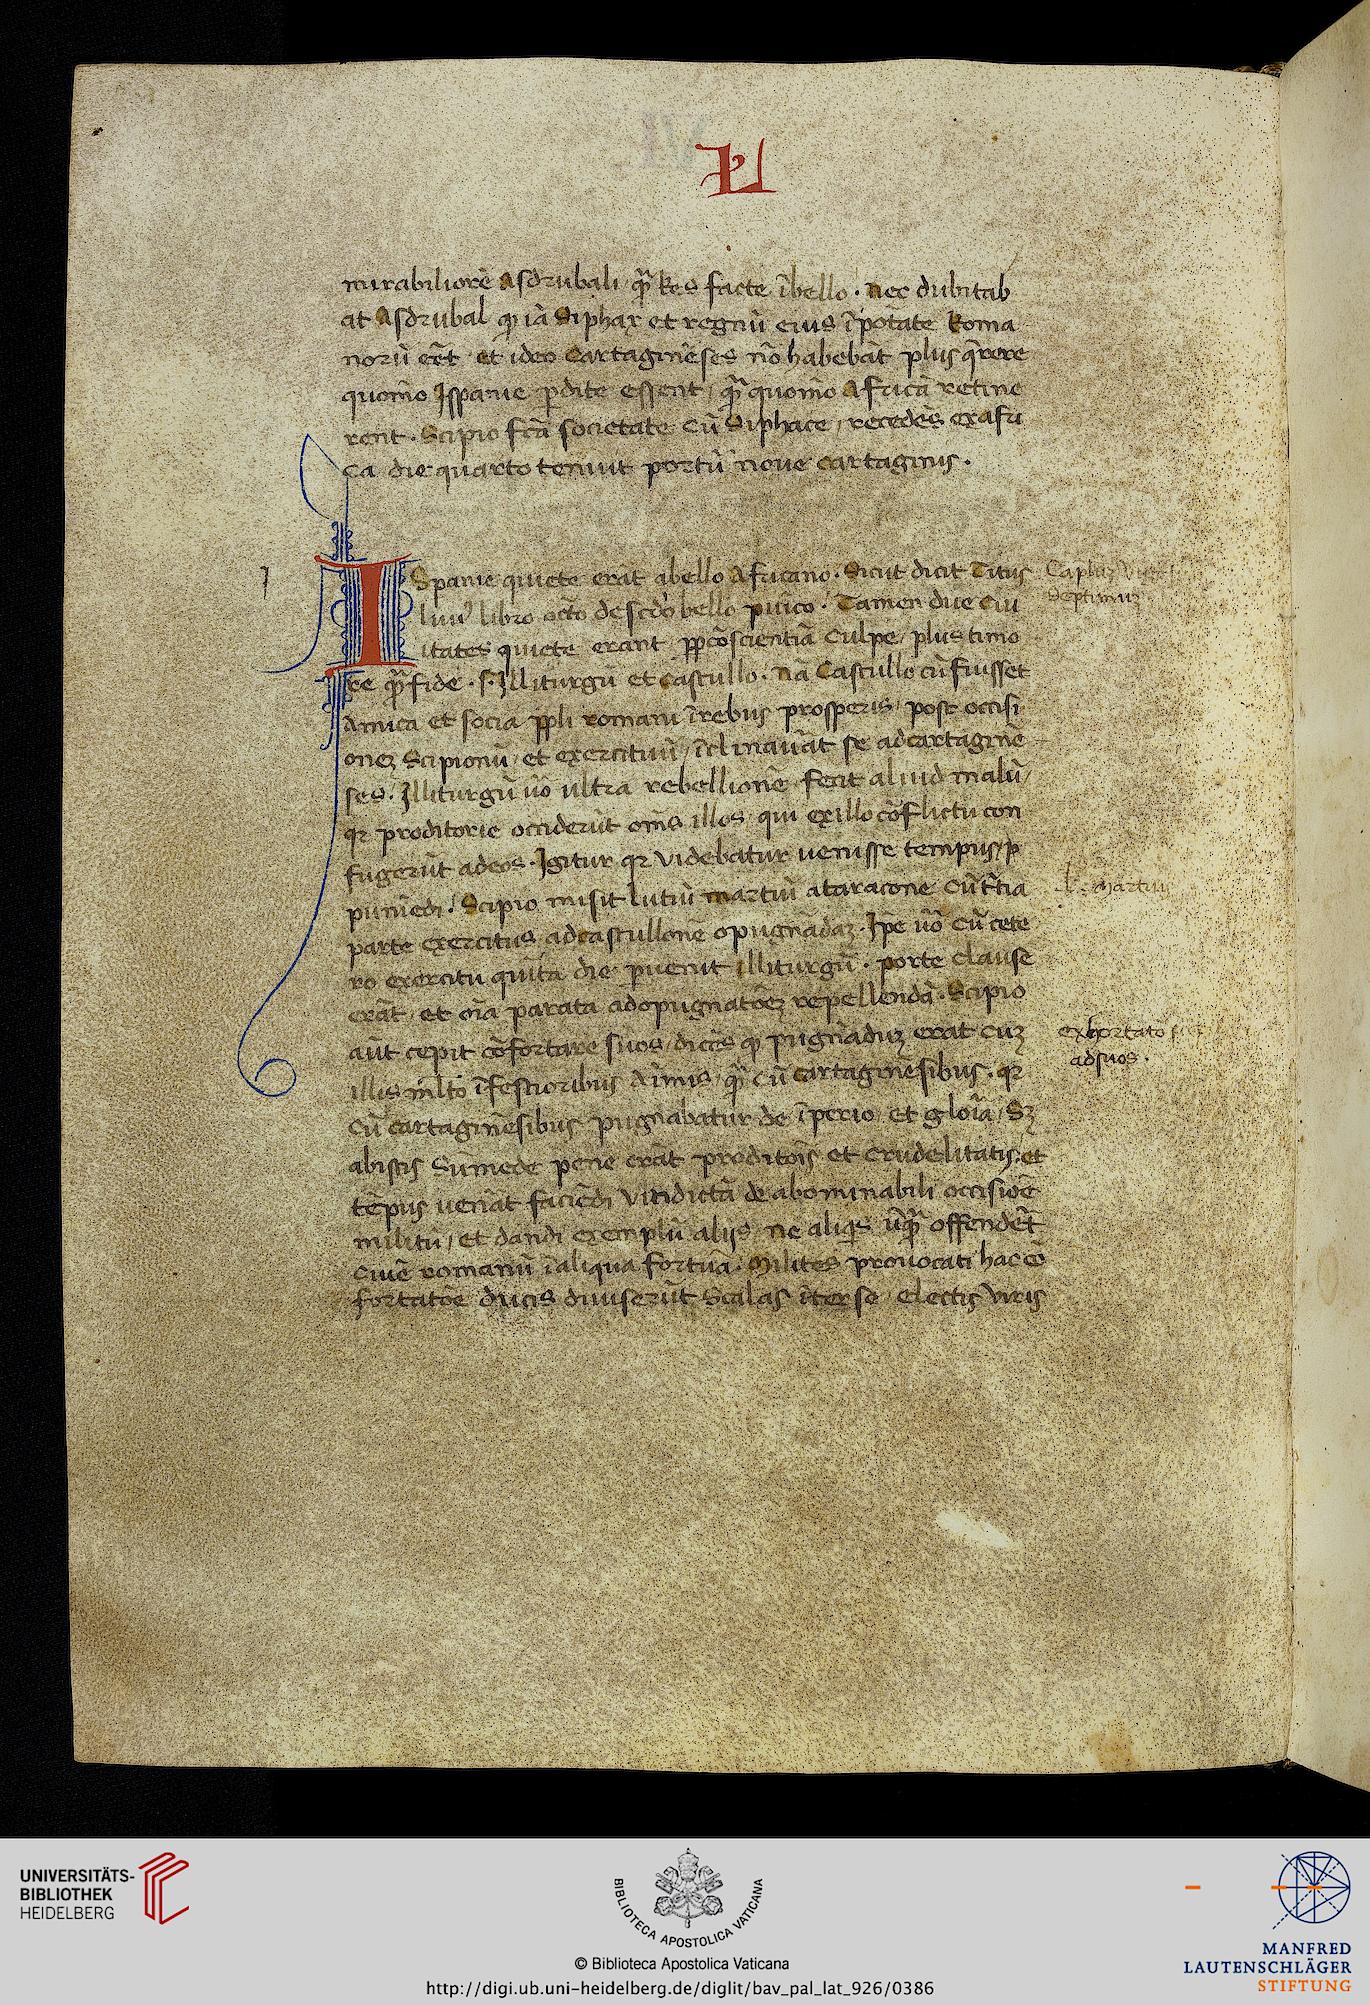 L
mirabiliorē Asdrubali qr̄ Res facte ībello . nec dubitab
at Asdrubal qp iā Siphax et regnū eius īpotāte Roma
norū eēt et ideo Cartaginēses nō habebāt plus q̄rere
quomō Ispanie p̄dite essent / qr̄ quomō Africā retine
rent . Scipio fcā societate cū Siphace / recedēs exafri
ca die quarto tenuit portū noue cartaginis .
I
ISpanie quiete erat abello Africano . Sicut dicit Titus
liuiꝰ libro octō de scdō bello puīco . Tamen due Ciu
itates quiete erant pp̄ cōscientiā Culpe / plus timo
re qr̄ fide . s . Illiturgū et Castullo . nā Castullo cū fuisset
Amica et socia pp̄li romani īrebus prosperis / post occisi
onez Scipionū / et exercituū / īclinauāt se adcartaginē
ses . Illiturgū uō ultra rebellionē fecit aliud malū /
qr proditorie occiderūt oīns illos qui exillo cōflictu con
fugerūt adeos . Igitur qr videbatur uenisse tempus / p
puniēdi . Scipio misit lutiū martiū ataracone cū t̄tia
parte exercitus adcastullonē opugnādaz . Ip̄e uō cū cete
ro exercitu quīta die p̄uenit illiturgū . porte clause
erāt / et oīa parata adopugnatōez repellendā . Scipio
aūt cepit cōfortare suos / dicēs qp pugnāduz erat cuz
illis mlto īfestioribus Aīmis / qr̄ cū cartaginēsibus . qr
Cū cartaginēsibus pugnabatur de īperio et gloīa / Sz
abistis Sumēde pene erāt proditoīs et crudelitatis / et
tēpus ueniāt faciēdi vīdictā de abominabili occisiōe
militū / et dandi exemplū alijs / ne aliqis ūqr̄ offendēt
Ciuē romanū īaliqua fortuā . Milites prouocati hac cō
fortatōe ducis diuiserūt Scalas īter se electis viris
septimuz
l . martiū
exhortatō s
adsuos .
UNIVERSITÄTS-
BIBLIOTHEK
HEIDELBERG
BIBLIOTECA APOSTOLICA VATICANA
© Biblioteca Apostolica Vaticana
http://digi.ub.uni-heidelberg.de/diglit/bav_pal_lat_926/0386
MANFRED
LAUTENSCHLÄGER
STIFTUNG